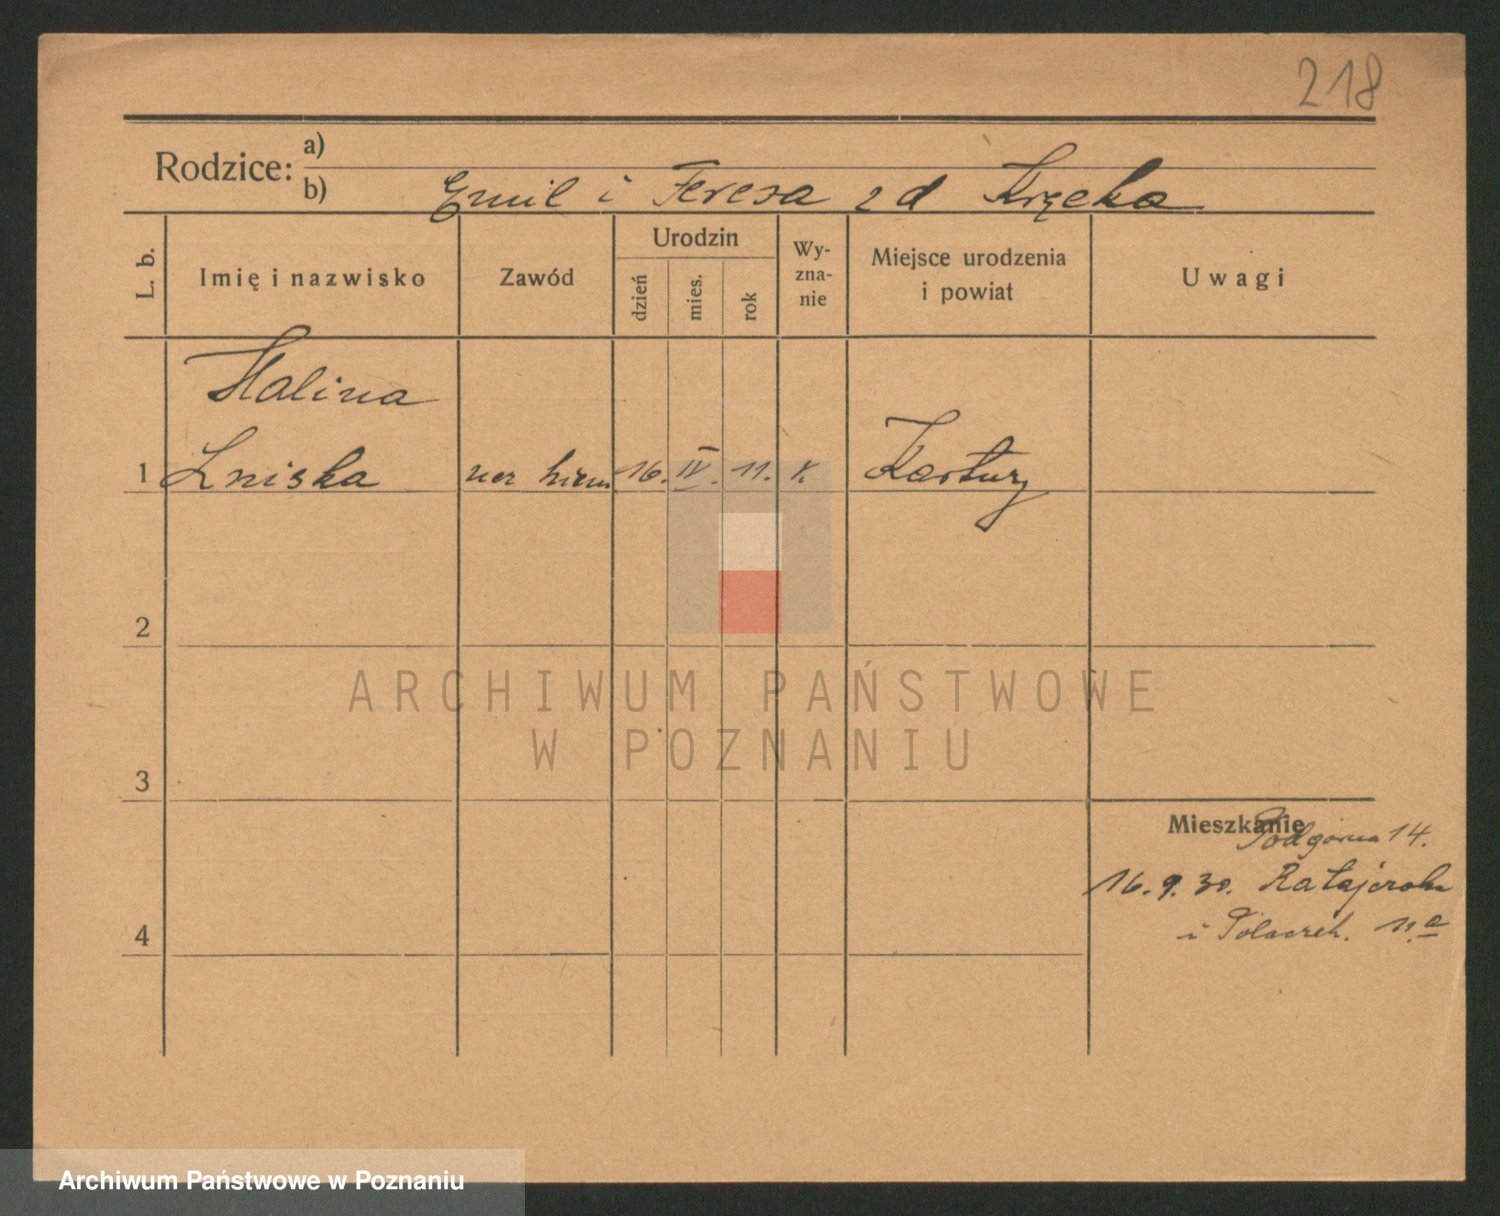 218
Rodzice:
a)
b) Emil i Teresa z d Kręcka
L. b.
Imię i nazwisko
Zawód
Urodzin
dzień
mies.
rok
Wy-
zna-
nie
Miejsce urodzenia
i powiat
Uwagi
Halina
1 Lniska 16. IV. 11. k. Kartuzy
2
3
4
Mieszkanie
Podgórna 14.
16.9.30. Ratajczaka
i 11.a
ARCHIWUM PAŃSTWOWE
W POZNANIU
Archiwum Państwowe w Poznaniu